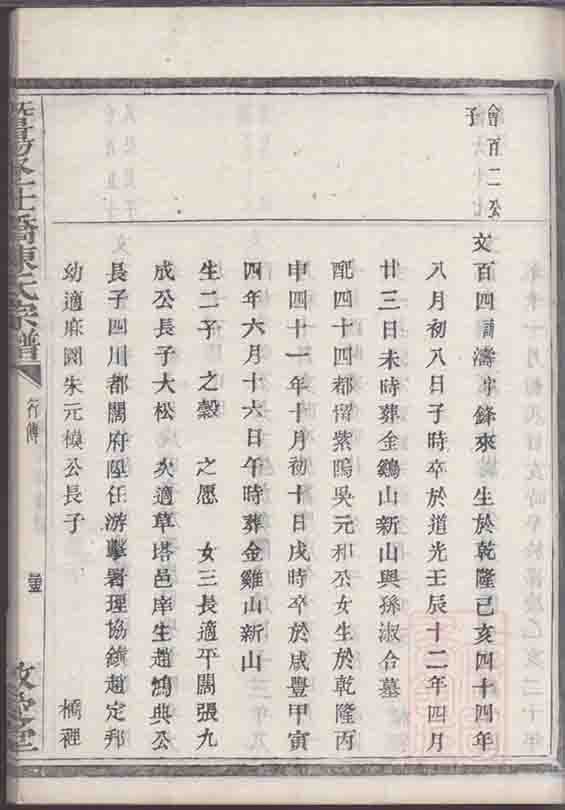 會百二公
子
文百四諱濤字鋒來 生於乾隆己亥四十四年
八月初八日子時卒於道光壬辰十二年四月
廿三日未時葬金鷄山新山與孫淑合墓
配四十四都摺紫隖吳元和公女生於乾隆丙
申四十一年十月初十日戌時卒於咸豐甲寅
四年六月十六日午時葬金雞山新山
生二子 之榖 之愿 女三長適平闊張九
成公長子大松 次適草塔邑庠生趙鴻典公
長子四川都閫府陞任游擊署理協鎮趙定邦
幼適麻園朱元模公長子 橋裡
暨陽 橋陳氏宗譜
行傳
敦 堂